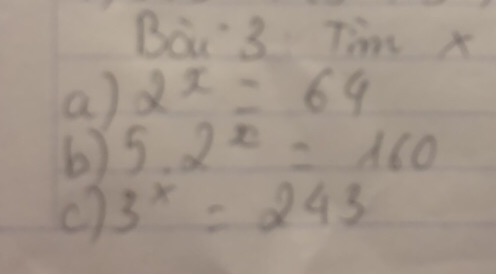 Bài 3: Tìm x
a) 2^x = 64
b) 5.2^x = 160
c) 3^x = 243